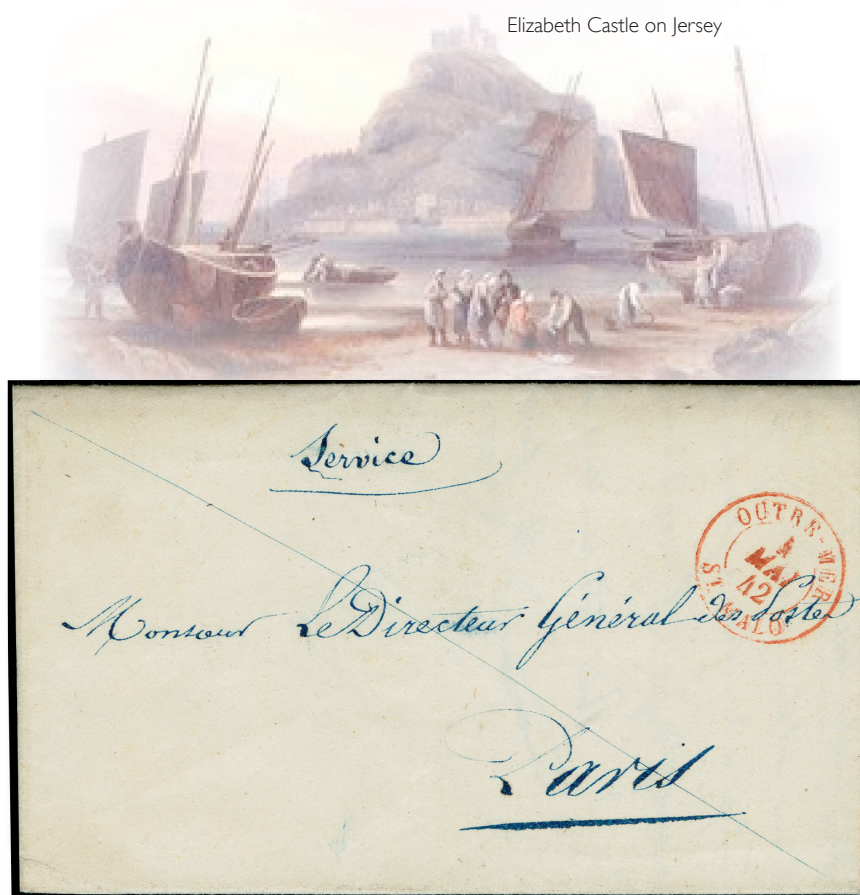 Elizabeth Castle on Jersey
Service
OUTRE-MER
MAI
42
ST-MALO
Monsieur Le Directeur Général des Postes
Paris